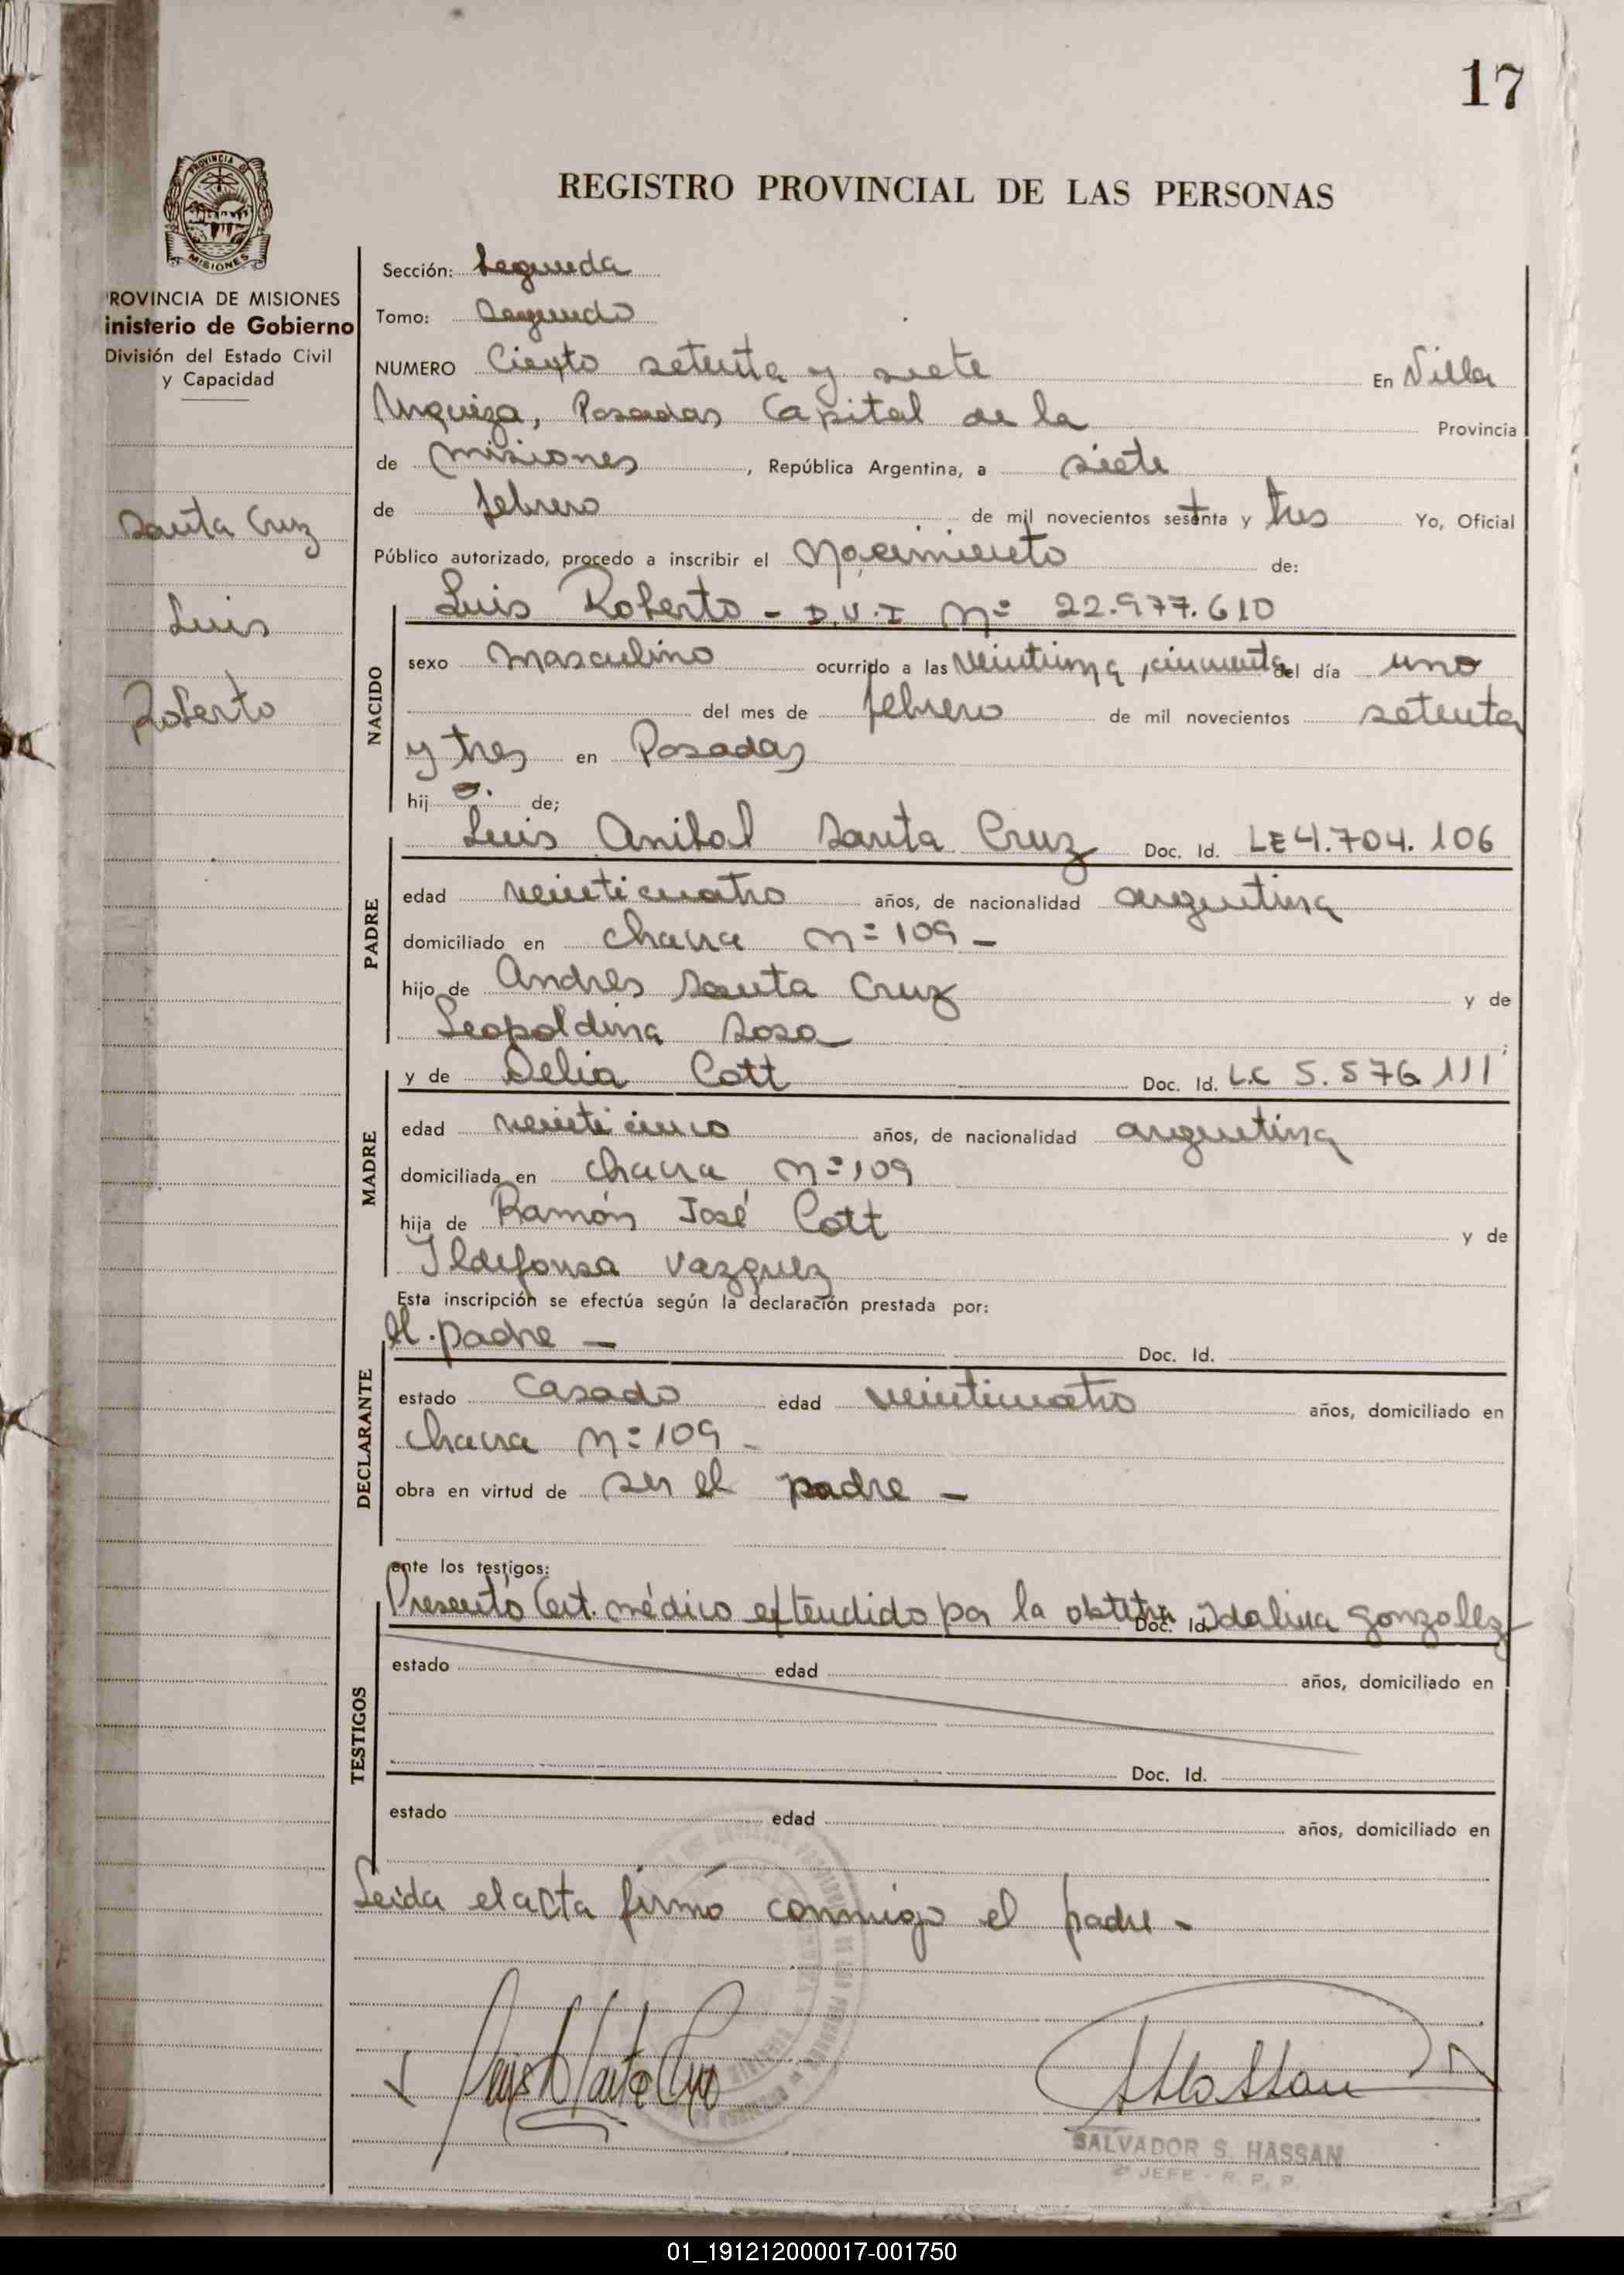 17
PROVINCIA DE
MISIONES
REGISTRO PROVINCIAL DE LAS PERSONAS
ROVINCIA DE MISIONES
inisterio de Gobierno
División del Estado Civil
y Capacidad
Santa Cruz
Luis
Roberto
Sección: Segunda
Tomo: Segundo
NUMERO Ciento setenta y siete En Villa
Urquiza, Posadas Capital de la Provincia
de Misiones, República Argentina, a siete
de febrero de mil novecientos sesenta y tres Yo, Oficial
Público autorizado, procedo a inscribir el Nacimiento de:
Luis Roberto - D.U.I Nº 22.977.610
NACIDO
sexo masculino ocurrido a las veintiuna, cincuenta del día uno
del mes de febrero de mil novecientos setenta
y tres en Posadas
hijo. de;
PADRE
Luis Anibal Santa Cruz Doc. Id. LE 4.704.106
edad veinticuatro años, de nacionalidad argentina
domiciliado en chacra nº 109 -
hijo de Andres Santa Cruz y de
Leopoldina Sosa ;
MADRE
y de Delia Cott Doc. Id. L.C 5.576.111
edad veinticinco años, de nacionalidad argentina
domiciliada en chacra nº 109
hija de Ramón José Cott y de
Ildefonsa Vazquez
Esta inscripción se efectúa según la declaración prestada por:
DECLARANTE
el padre - Doc. Id.
estado casado edad veinticuatro años, domiciliado en
chacra nº 109 -
obra en virtud de ser el padre -
ante los testigos:
TESTIGOS
Presentó Cert. médico extendido por la obstetra Doc. Id. Idalina Gonzalez
estado edad años, domiciliado en
Doc. Id.
estado edad años, domiciliado en
Leida el acta firmó conmigo el padre -
Luis A Santa Cruz
SALVADOR S. HASSAN
2º JEFE - R. P. P.
01_191212000017-001750